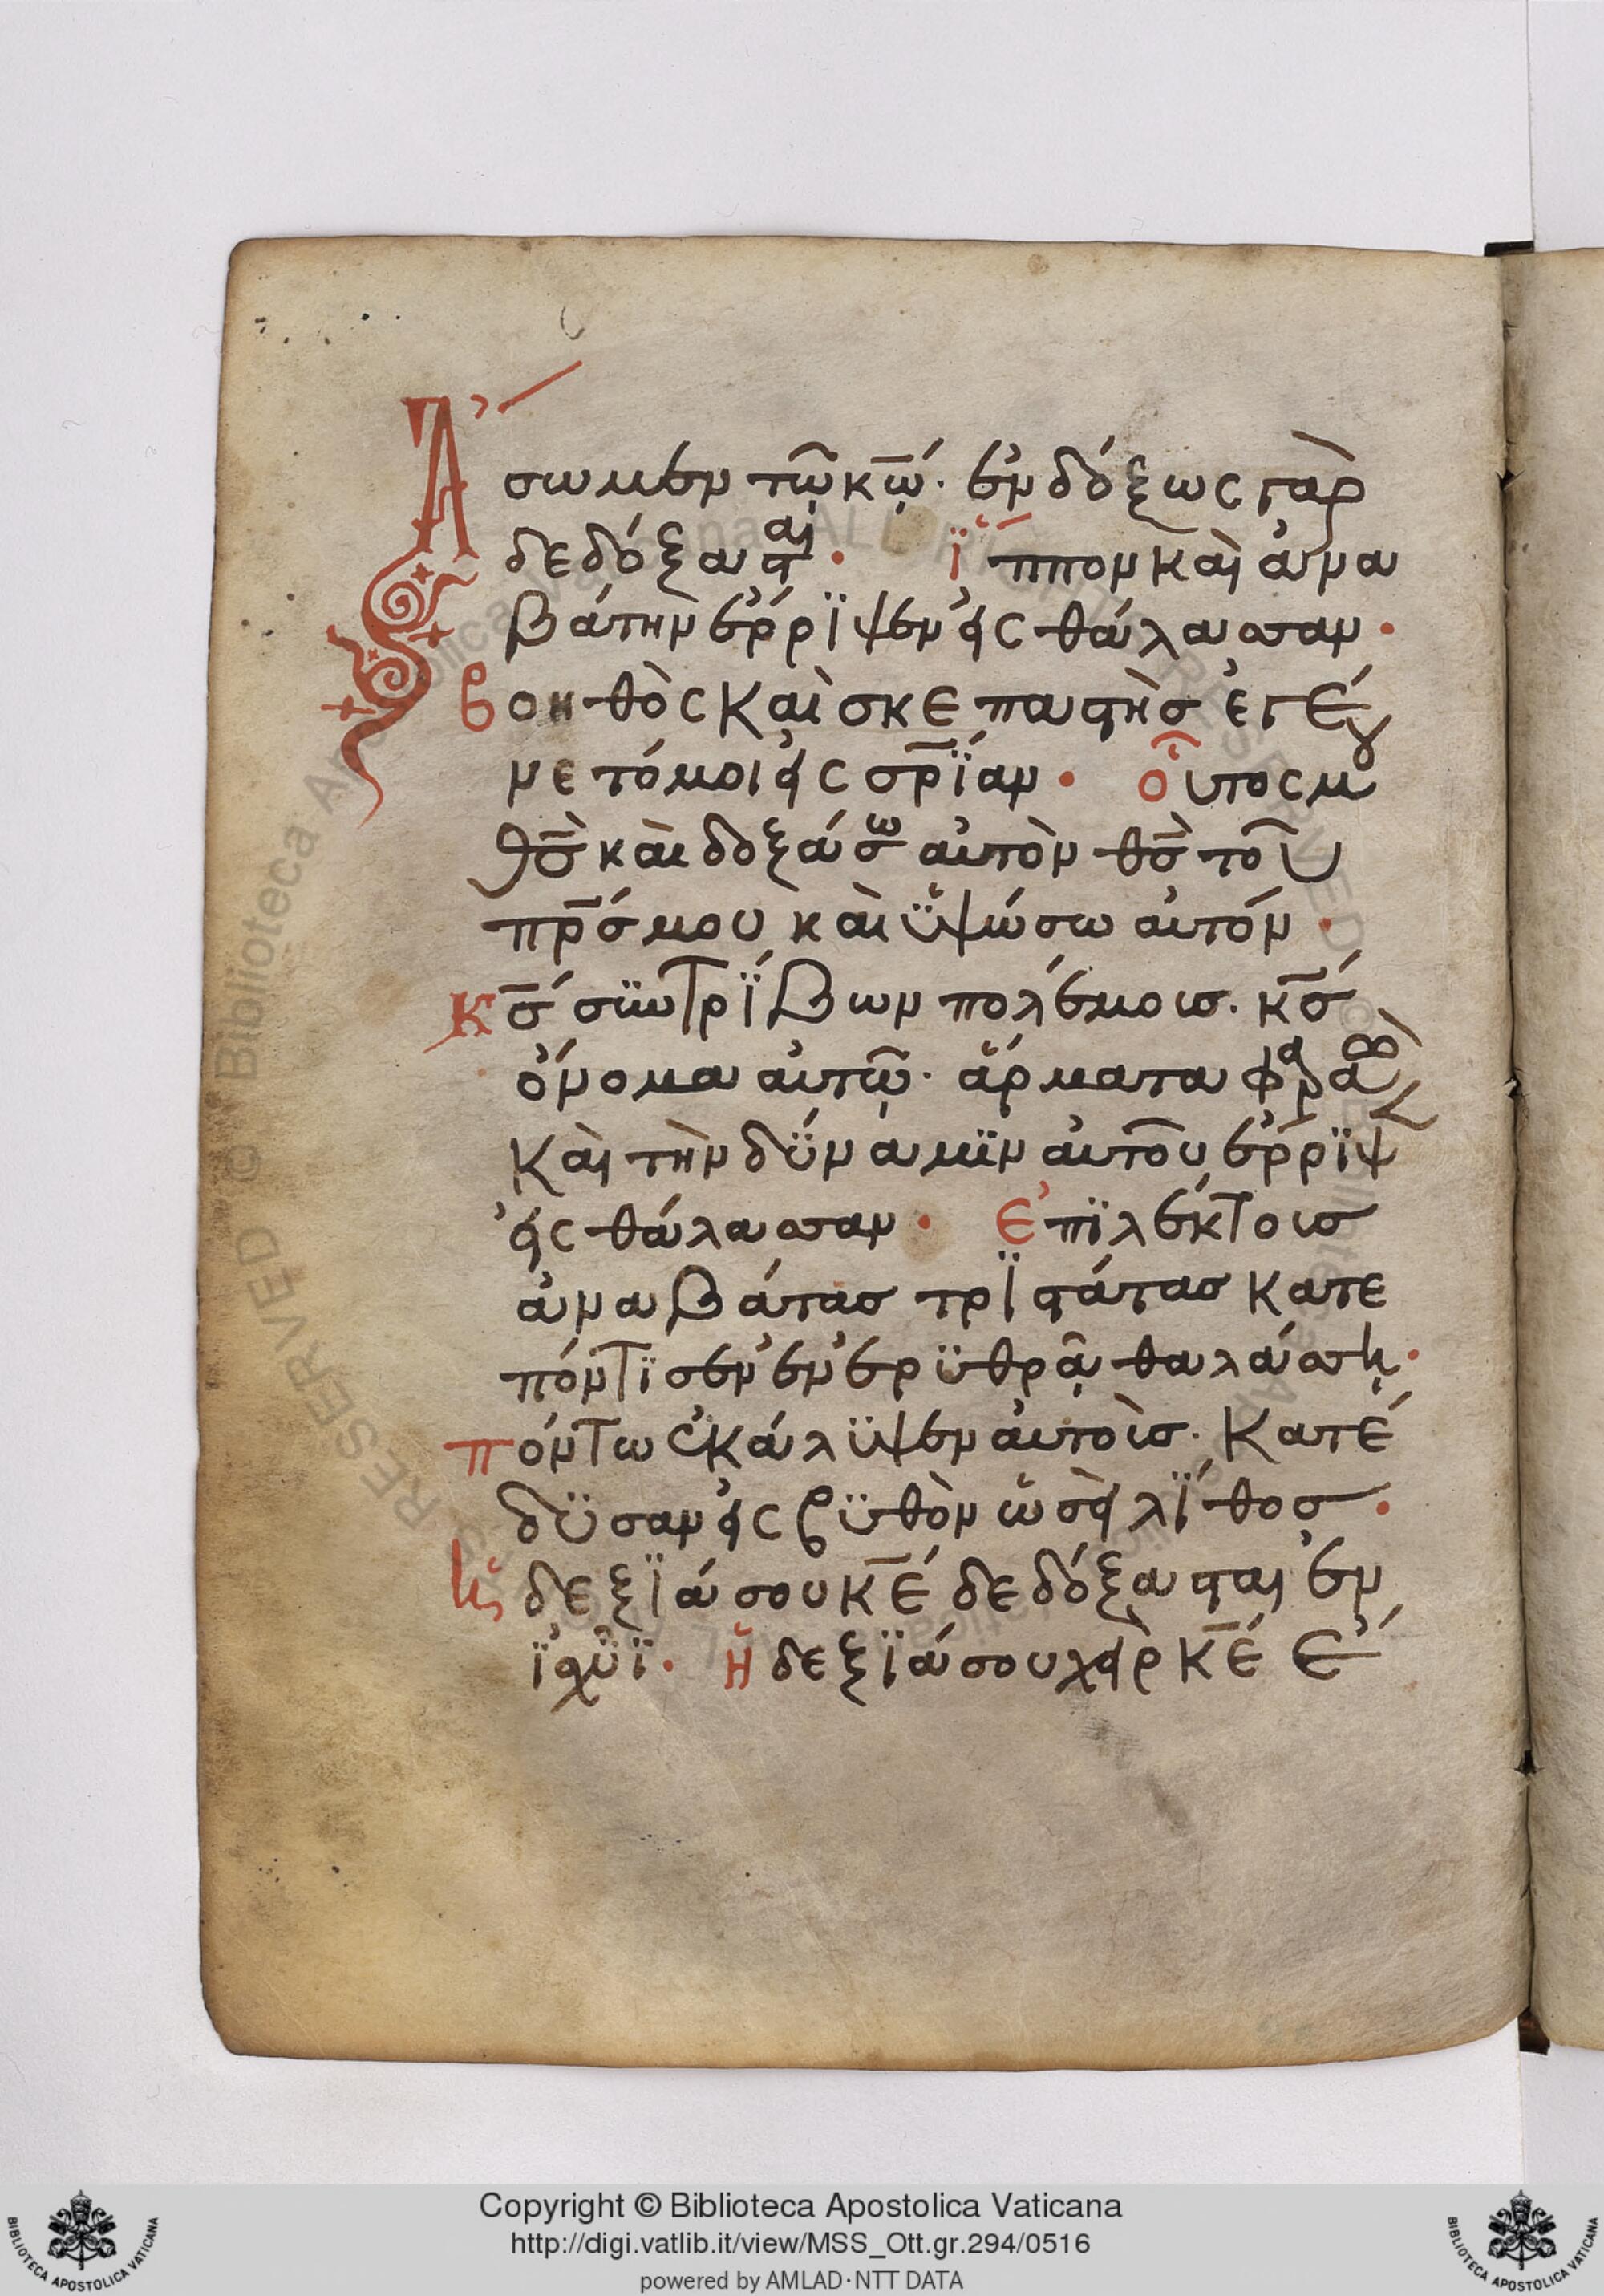 Ἄσωμεν τῷ κ̅ῳ̅· ἐνδόξως γὰρ
δεδόξασται· ἵππον καὶ ἀνα
βάτην ἔρριψεν εἰς θάλασσαν·
βοηθὸς καὶ σκεπαστὴσ ἐγέ
νετό μοι εἰς σ̅ρ̅ΐαν· οὗτός μου
θ̅σ̅ καὶ δοξάσω αὐτὸν θ̅σ̅ τοῦ
π̅ρ̅σ̅ μου καὶ ὑψώσω αὐτόν·
κ̅σ̅ σϋντρΐβων πολέμοισ· κ̅σ̅
ὄνομα αὐτῷ· ἅρματα φαραὼ
καὶ τὴν δΰναμϊν αὐτοῦ ἔρρϊψ
εἰς θάλασσαν· ἐπϊλέκτοισ
ἀναβάτασ τρϊστάτασ κατε
πόντϊσεν ἐν ἐρϋθρᾷ θαλάσσῃ·
πόντω ἐκάλϋψεν αὐτοὶσ· κατέ
δϋσαν εἰς βϋθὸν ὡσεὶ λΐθοσ·
ἡ δεξϊά σου κ̅ε̅ δεδόξασται ἐν
ϊσχύϊ· ἡ δεξϊά σου χεὶρ κ̅ε̅ ἔ
Copyright © Biblioteca Apostolica Vaticana
http://digi.vatlib.it/view/MSS_Ott.gr.294/0516
powered by AMLAD·NTT DATA